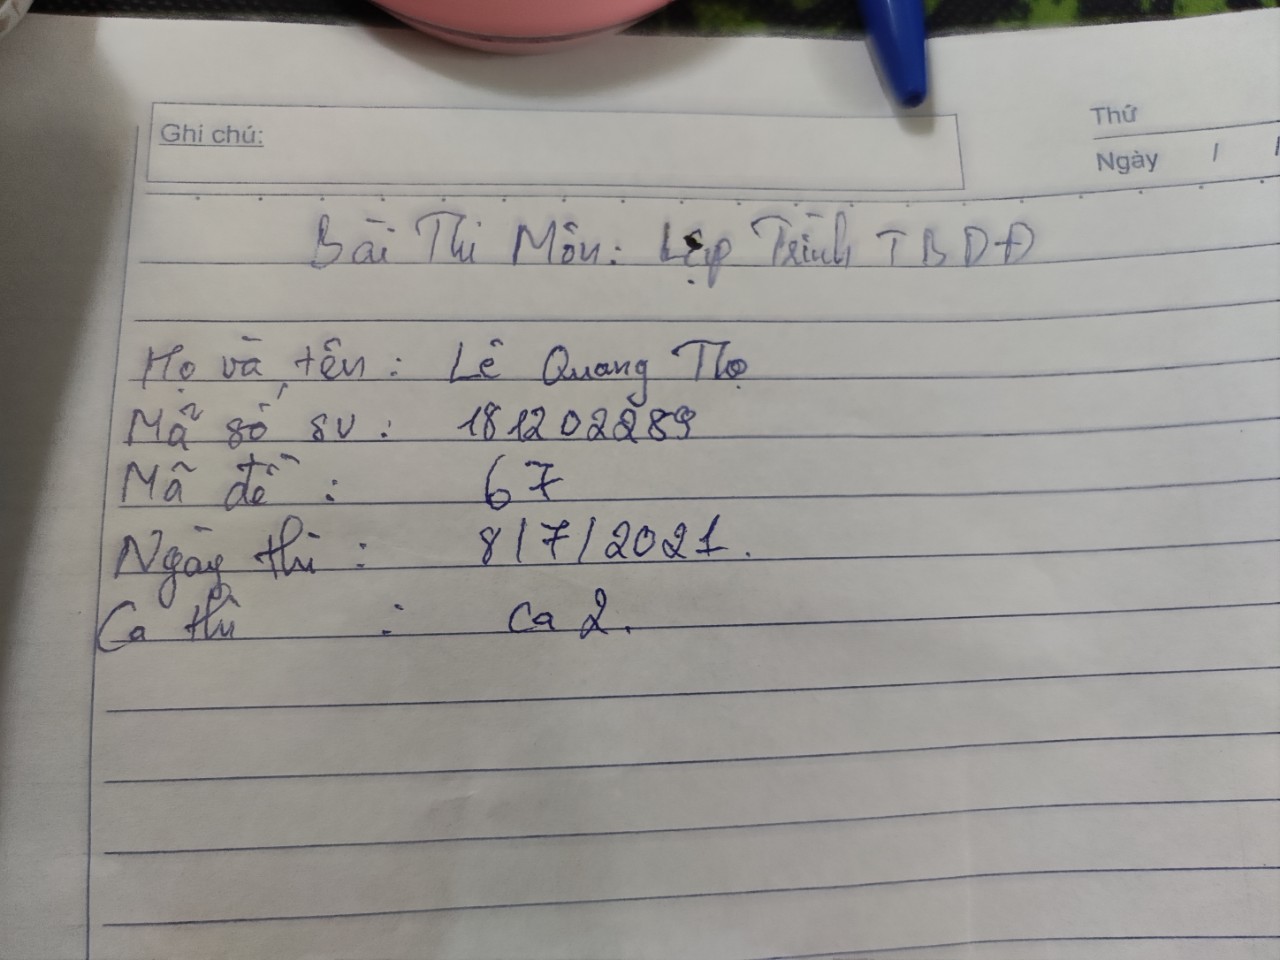 Ghi chú:
Thứ
Ngày / /
Bài Thi Môn: Lập Trình TBDĐ
Họ và tên: Lê Quang Thọ
Mã số sv: 181202289
Mã đề: 67
Ngày thi: 8/7/2021.
Ca thi: Ca 2.